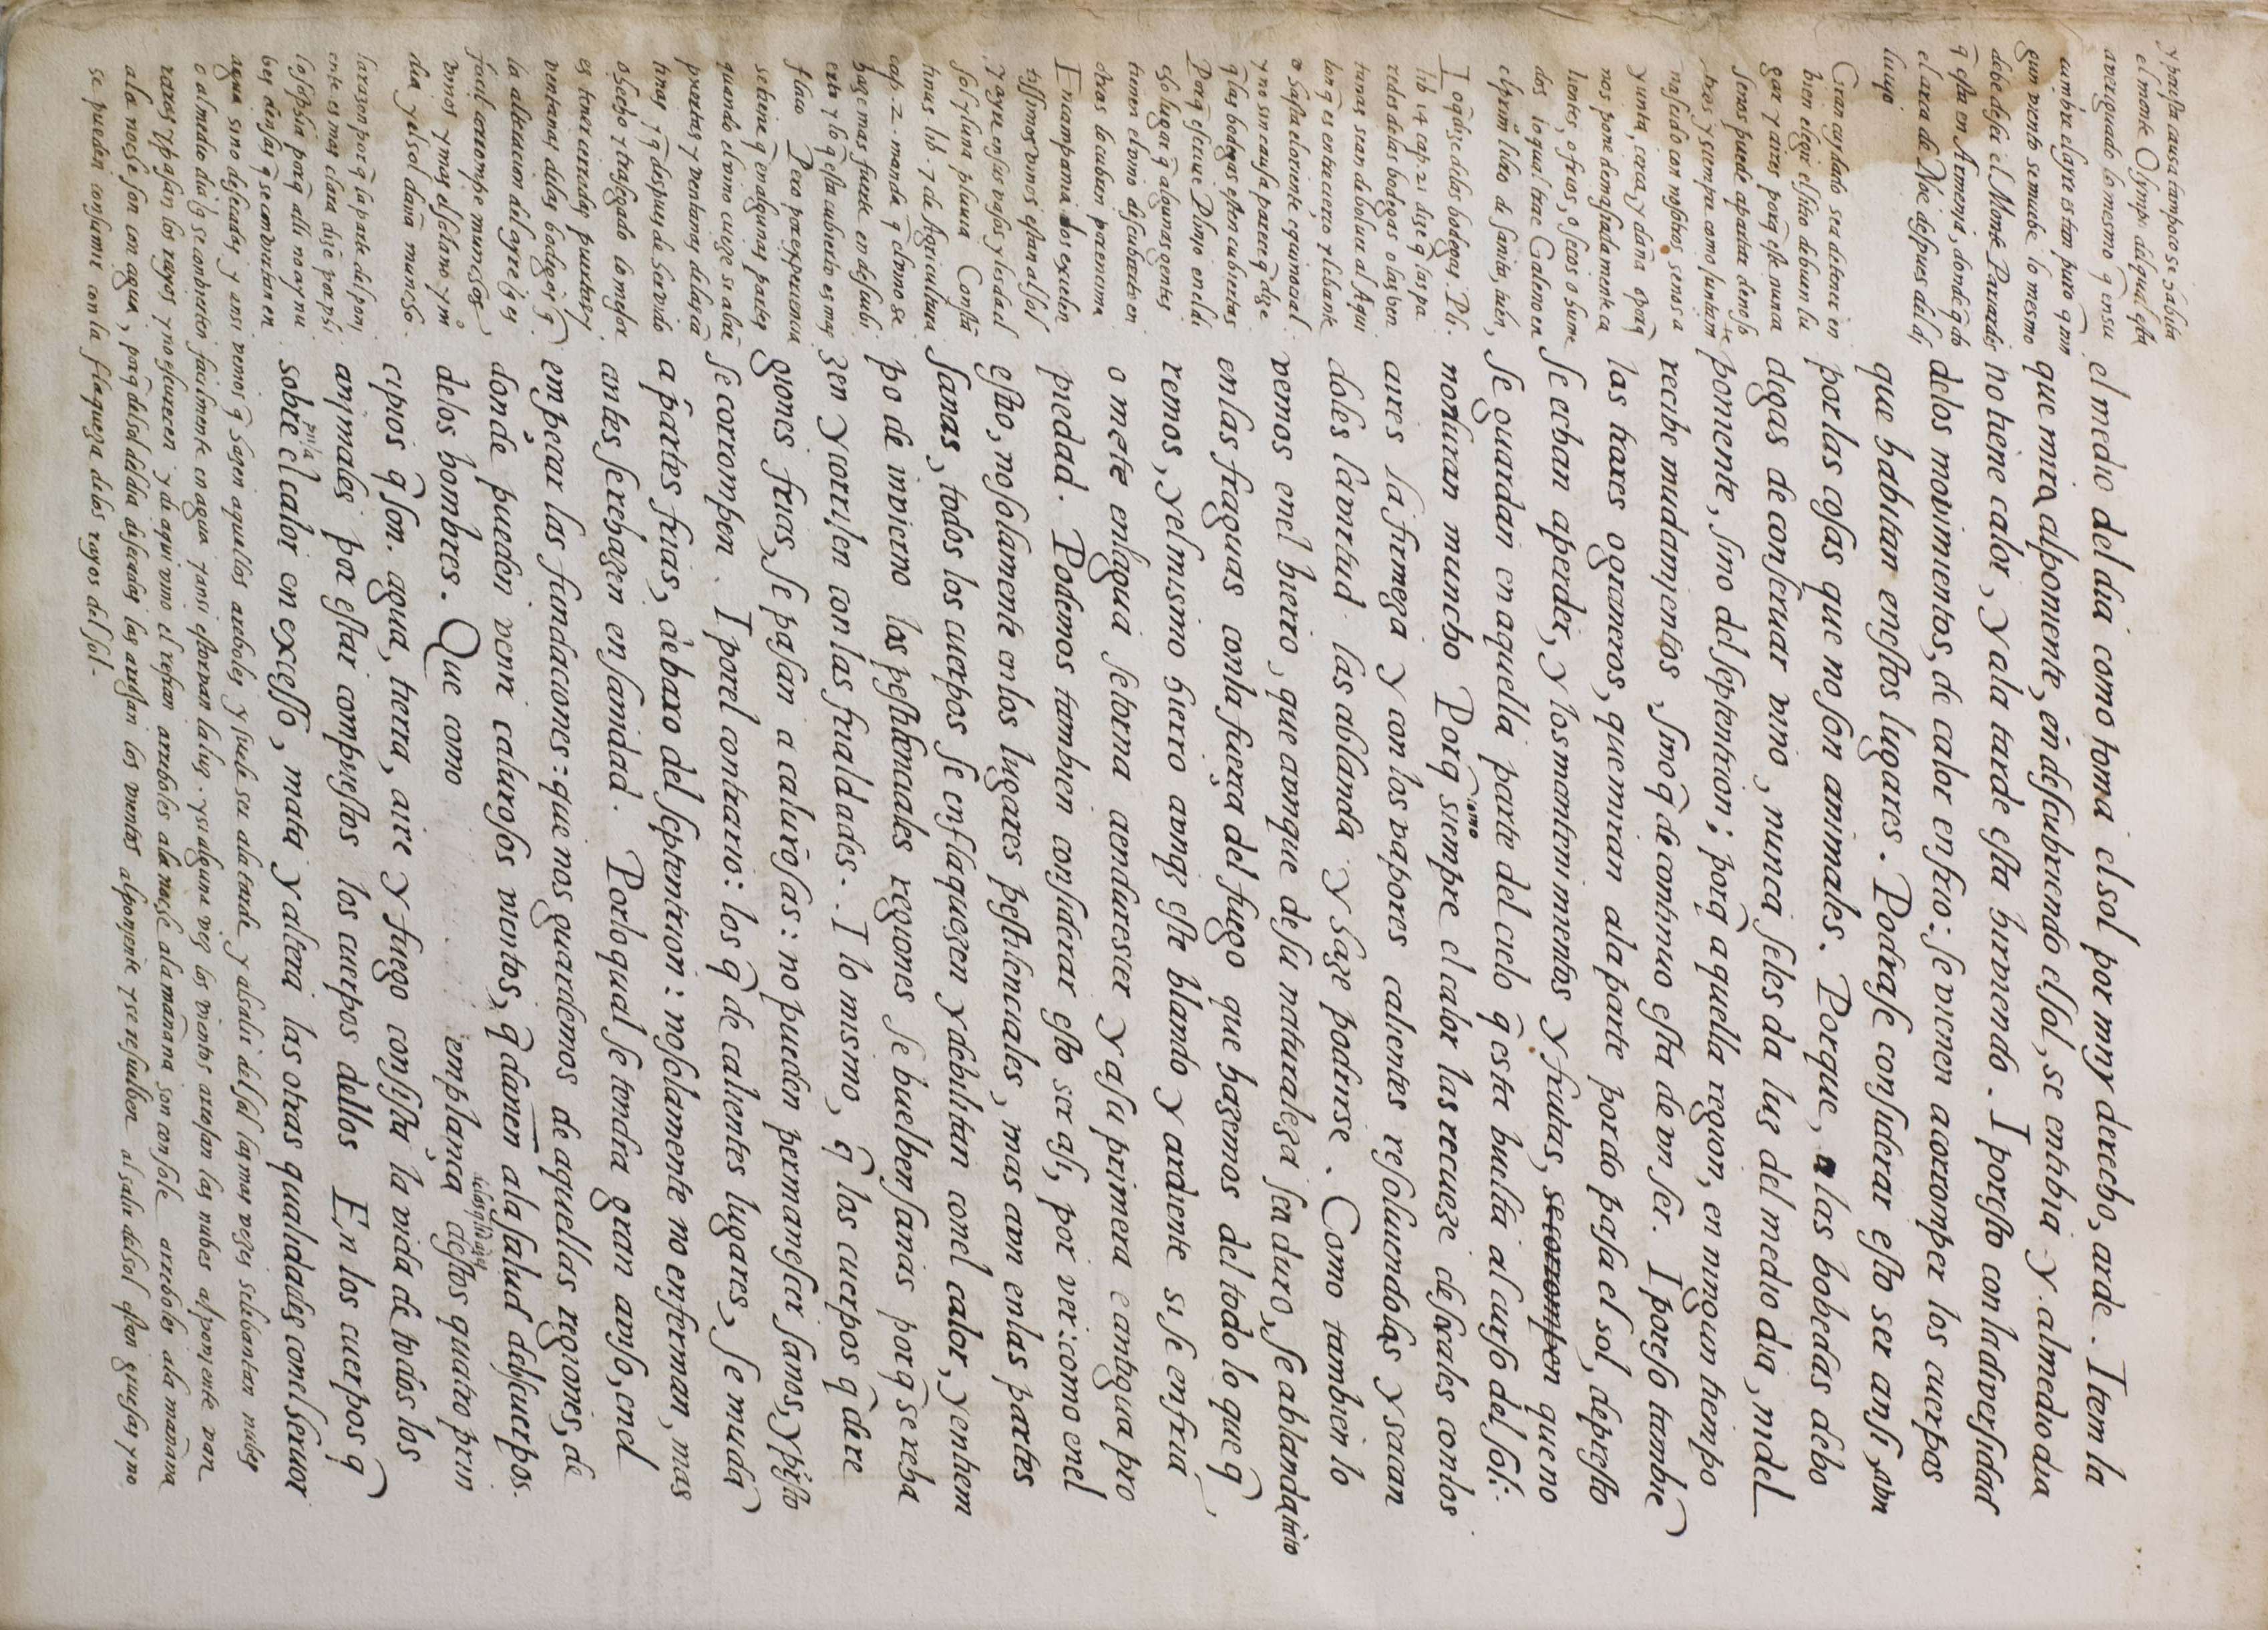 el medio del dia como toma el sol por muy derecho, arde. Item la
que mira al poniente, en descubriendo el sol, se entibia y al medio dia
no tiene calor, y a la tarde esta hirviendo. I por esto con la diversidad
delos movimientos, de calor en frio: se vienen a corromper los cuerpos
que habitan en estos lugares. Podrase considerar esto ser ansi, aun
por las cosas que no son animales. Porque, a las bobedas debo
degas de conservar vino, nunca se les da luz del medio dia, ni del
poniente, sino del septentrion; porq̃ aquella region, en ningun tiempo
recibe mudamientos, sino q̃ de continuo esta de un ser. I por eso tambiẽ
las troxes o graneros, que miran a la parte por do pasa el sol, de presto
se echan aperder, y los mantenimientos y frutas, se corrompen que no
se guardan en aquella parte del cielo q̃ esta buelta al curso del sol:
no duran muncho Porq̃ como sempre el calor las recueze desecales con los
aires la firmeza y con los vapores calientes resolviendolas y sacan
doles la virtud las ablanda y haze podrirse. Como tambien lo
vemos en el hierro, que aunque de su naturaleza sea duro, se ablanda tãto
en las fraguas con la fuerça del fuego que hazemos del todo lo que q̃
remos, y el mismo hierro aunq̃ este blando y ardiente si se enfria
o mete en la gua se torna a endurescer y a su primera e antigua pro
piedad. Podemos tambien considerar esto ser asi, por ver: como en el
estio, no solamente en los lugares pestilenciales, mas aun en las partes
sanas, todos los cuerpos se enflaquezen y debilitan con el calor, y en tiem
po de invierno las pestilenciales regiones se buelben sanas porq̃ se reha
zen y orrilen con las frialdades. I lo mismo, q̃ los cuerpos q̃ de re
giones frias, se pasan a calurosas: no pueden permanescer sanos, y presto
se corrompen. I por el contrario: los q̃ de calientes lugares, se mudã
a partes frias, debaxo del septentrion: no solamente no enferman, mas
antes se rehazen en sanidad. Por lo qual se tendra gran aviso, en el
empeçar las fundaciones: que nos guardemos de aquellas regiones, de
donde pueden venir calurosos vientos, q̃ dañen ala salud delos cuerpos.
delos hombres. Que como emblanca destos quatro prin
cipios q̃ son. agua, tierra, aire y fuego consista la vida de todos los
animales por estar compuestos los cuerpos dellos En los cuerpos q̃
sobre el calor en excesso, mata y altera las otras qualidades con el servor
y por esta causa tampoco se habita
el monte Olympo del qual esta
averiguado lo mesmo q̃ en su
cumbre el ayre es tan puro q̃ nin
gun viento se muebe lo mesmo
debe de ser el Monte Parnaso
q̃ esta en Armenia, donde q̃do
el arca de Noe despues del di
luvio
Gran cuydado sea de tener en
bien elegir el sitio de buen lu
gar y aires porq̃ este nunca
se nos puede apartar de noso
tros y siempre como juntam
nascido con nosotros se nos a
yunta, cerca, y daña o pro
nos pone demasiadamente ca
lientes, o frios, o secos o hume
dos lo qual trae Galeno en
el primo libro de sanita, tuen,
I o q̃ dize delas bodegas. Pli.
lib 14 cap. 21 dize q̃ las pa
redes delas bodegas o las ven
tanas sean de bolver al Aqui
lon q̃ es entre cierzo y lebante
o hasta el oriente equinocial
y no sin causa parece q̃ dize
q̃ las bodegas esten cubiertas
Porq̃ escrive Plinio en el di
cho lugar q̃ algunas gentes
tienen el vino descubierto en
otras lo cubren por encima
En campania los excelen
tissimos vinos estan al sol
y ayre en sus vasos y les da el
sol y luna pluvia Constã
tinus lib. 7 de Agricultura
cap. 2. manda q̃ el vino se
haze mas fuerte en descubi
erto y lo q̃ esta cubierto es mas
flaco Pero por experiencia
se tiene q̃ en algunas partes
quando el vino cueze se abrẽ
puertas y ventanas delas cã
tinas y q̃ despues de hervido
o hecho y trasegado lo mejor
es tener cerradas puertas y
ventanas delas bodegas q̃
la alteracion del ayre q̃ es
facil corrompe muncho
vinos y mas el solano y m
dia y el sol daña muncho.
la razon por q̃ la parte del pon
ente es mas clara dize por phi
losophia porq̃ alli no ay nu
bes densas q̃ se convertan en
agua sino desecadas y ansi vemos q̃ hazen aquellos arreboles y suele ser ala tarde y al salir del sol las mas vezes se lebantan nubes
o al medio dia q̃ se conbierten facilmente en agua y ansi estorvan la luz. y si alguna vez los vientos arrojan las nubes al poniente van
raras y pasan los rayos y no escurecen y de aqui vino el refran arreboles ala noche ala mañana son con sole. arreboles ala mañana
ala noche son con agua, porq̃ del sol del dia desecadas las arrojan los vientos al poniente y se resuelben al salir del sol estan gruesas y no
se pueden consumir con la flaqueza delos rayos del sol.